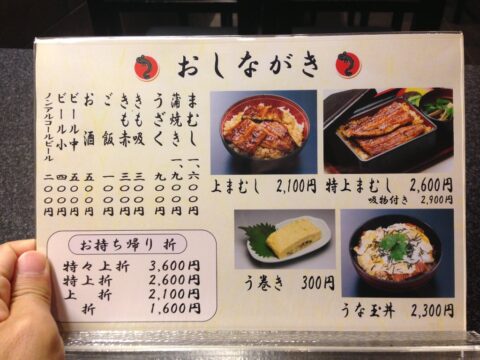 おしながき
まむし 一、六〇〇円
蒲焼き 一、九〇〇円
うざく 九〇〇円
きも吸 三〇〇円
きも赤 三〇〇円
ご飯 一〇〇円
お酒 五〇〇円
ビール中 五〇〇円
ビール小 四〇〇円
ノンアルコールビール 二〇〇円
上まむし 2,100円
特上まむし 2,600円
吸物付き 2,900円
う巻き 300円
うな玉丼 2,300円
お持ち帰り 折
特々上折 3,600円
特上折 2,600円
上 折 2,100円
折 1,600円